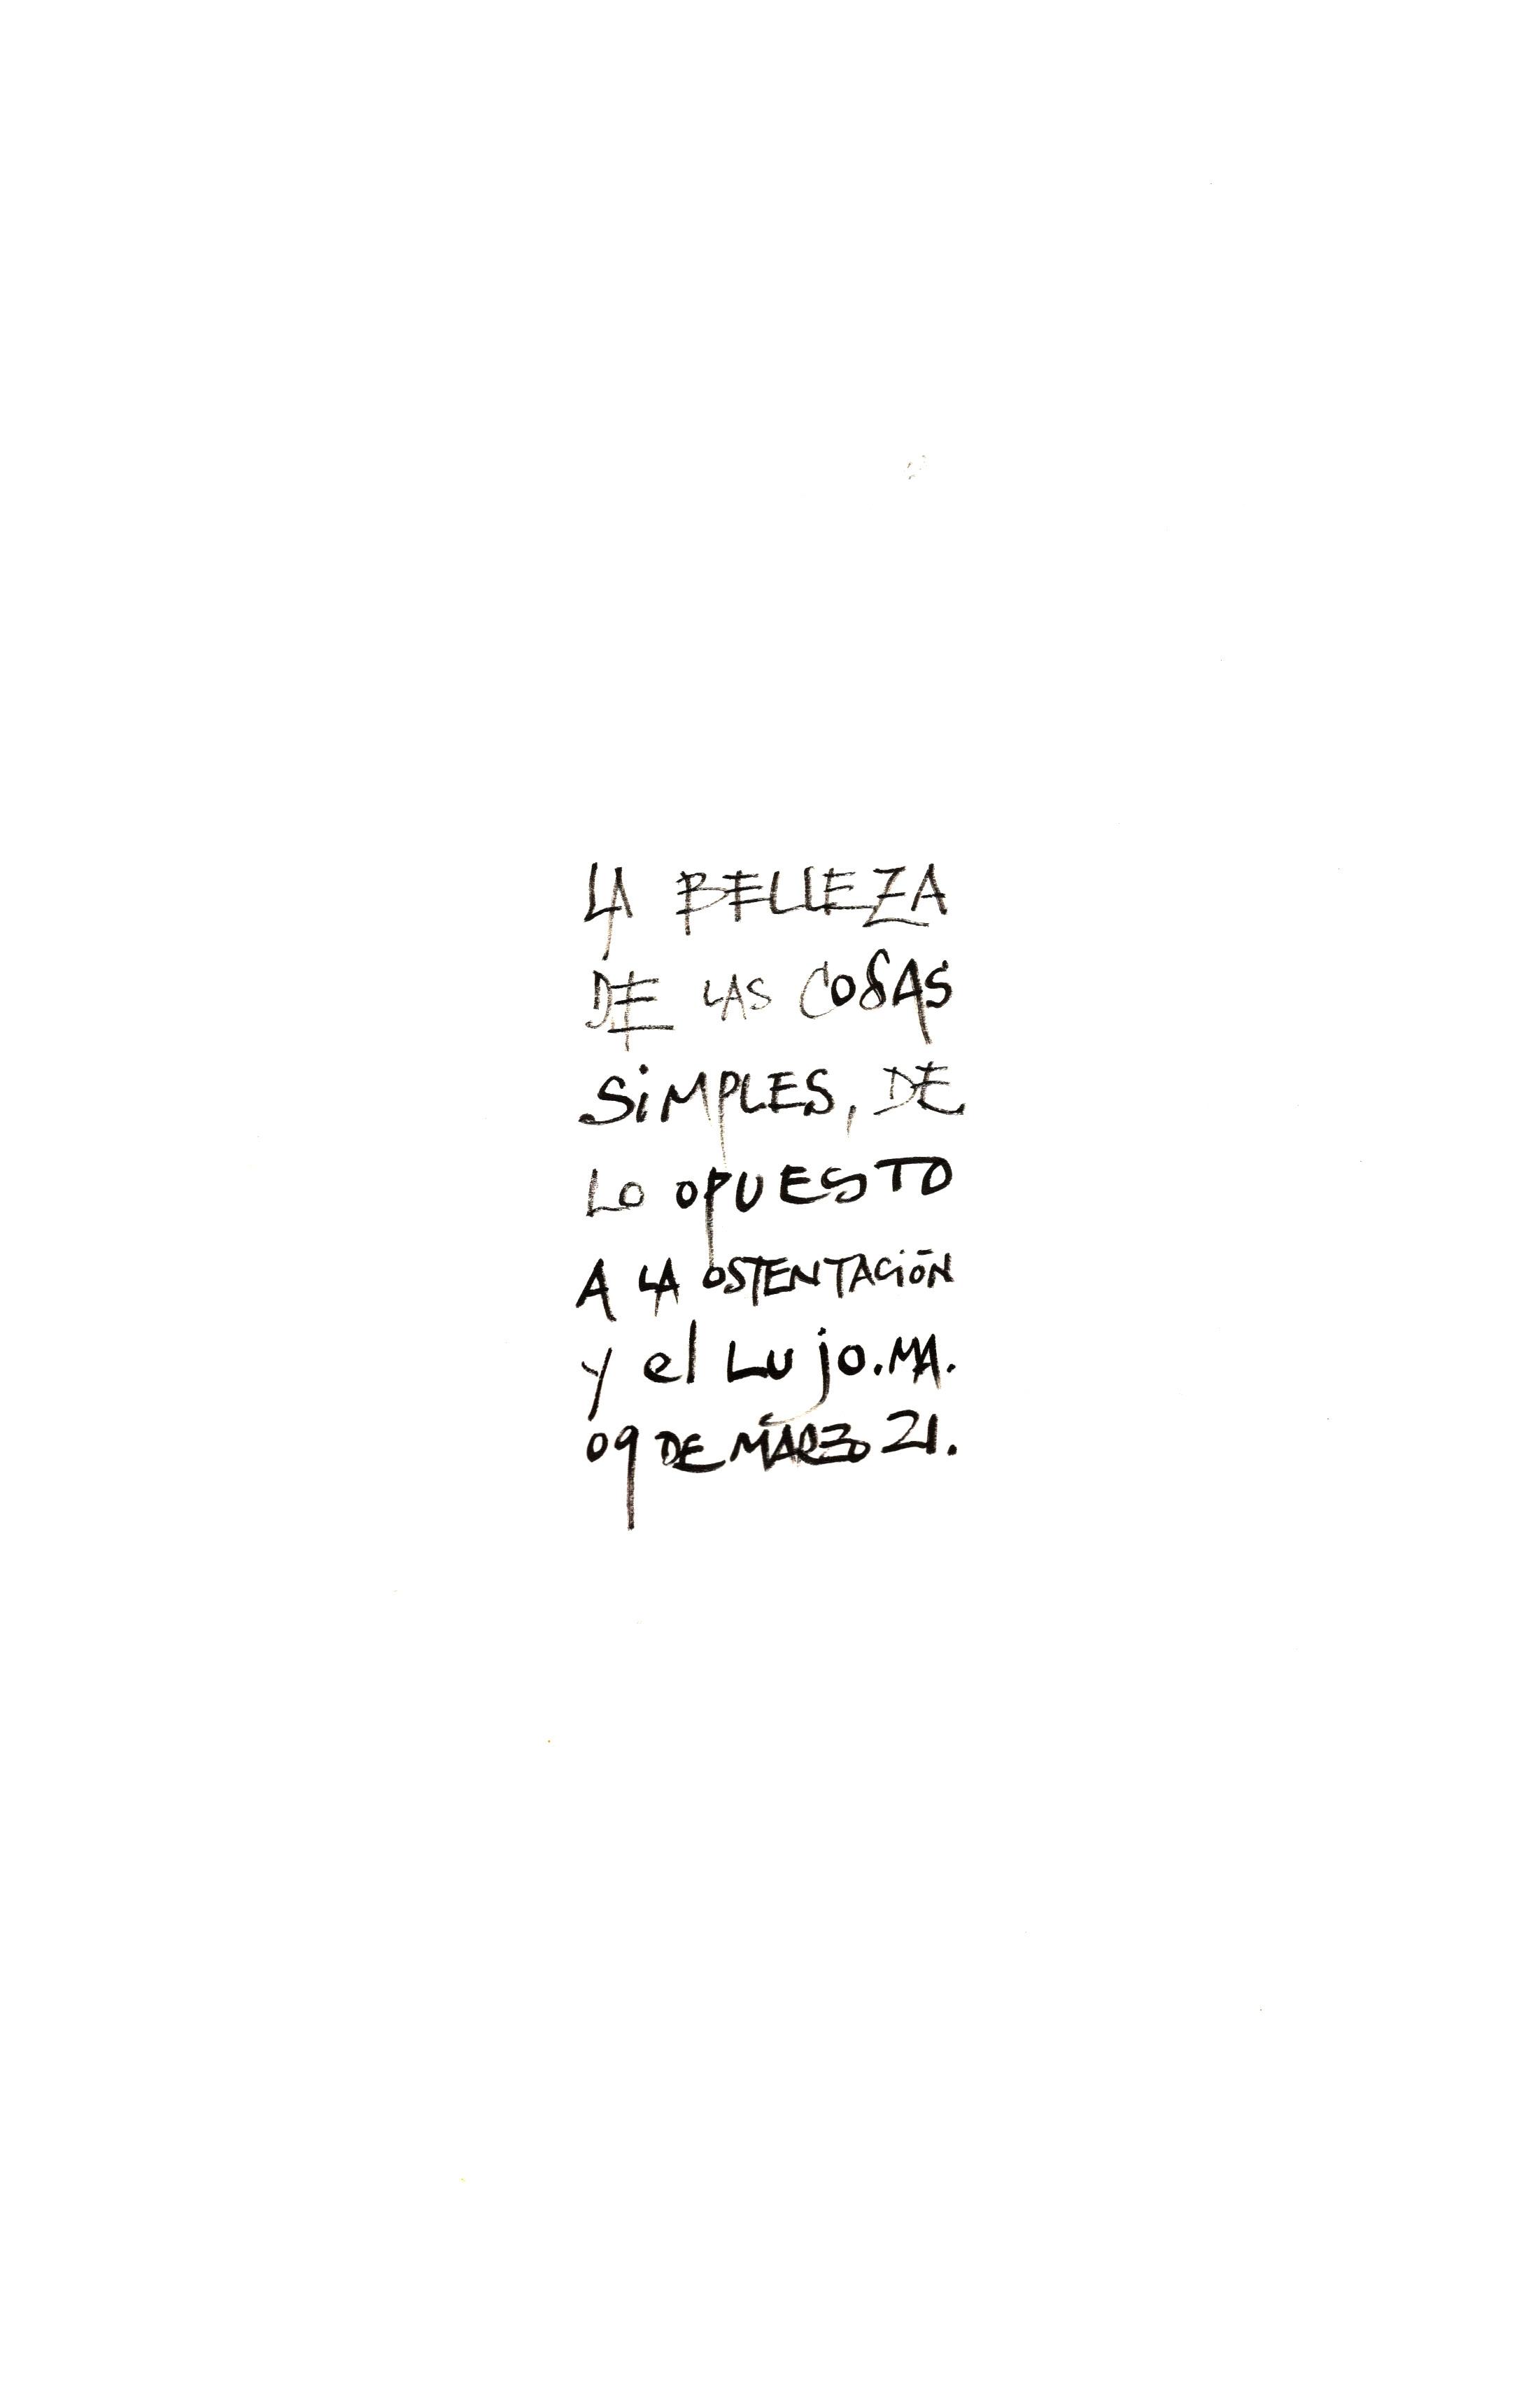 LA BELLEZA
DE LAS COSAS
SiMPLES, DE
LO OPUESTO
A LA OSTENTACIÓN
y el Lujo. MA.
09 DE MARZO 21.